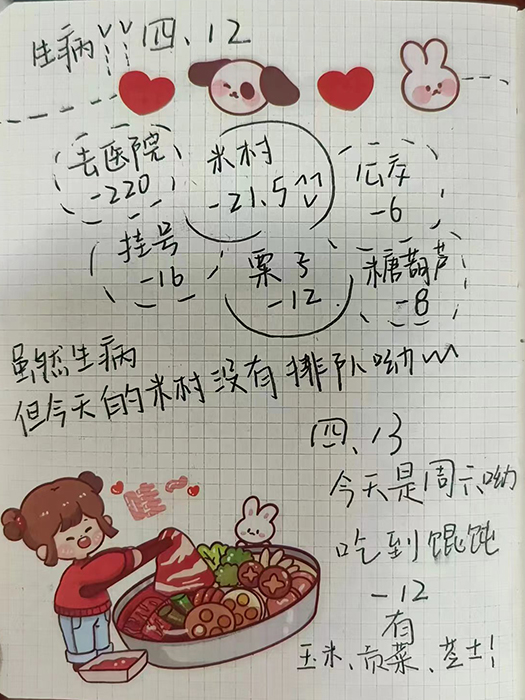 生病 四、12
去医院 米村 瓜子
-220 -21.5 -6
挂号 栗子 糖葫芦
-16 -12 -8
虽然生病
但今天的米村没有排队呦~
四、13
今天是周六呦
哇
吃到馄饨
-12
有
玉米、贡菜、芝士!